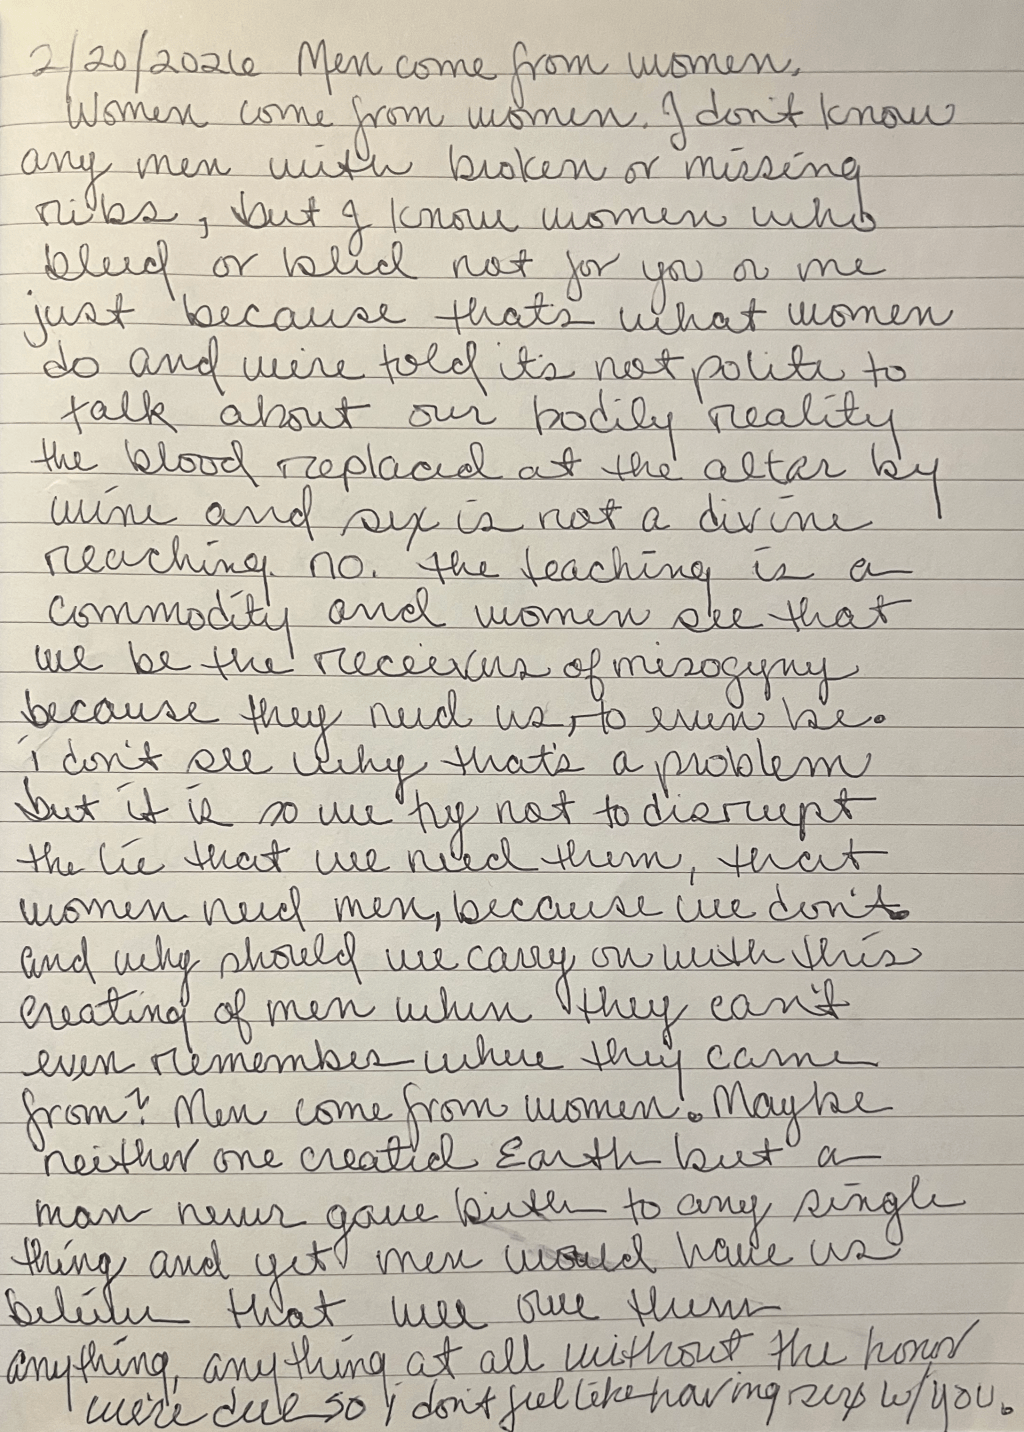 2/20/2026 Men come from women.
Women come from women. I don't know
any men with broken or missing
ribs, but I know women who
bleed or bled not for you or me
just because that's what women
do and we're told it's not polite to
talk about our bodily reality
the blood replaced at the altar by
wine and sex is not a divine
reaching. no. the teaching is a
commodity and women see that
we be the receivers of misogyny
because they need us, to even be.
i don't see why that's a problem
but it is so we try not to disrupt
the lie that we need them, that
women need men, because we don't.
and why should we carry on with this
creating of men when they can't
even remember where they came
from? Men come from women. Maybe
neither one created Earth but a
man never gave birth to any single
thing and yet men would have us
believe that we owe them
anything, anything at all without the honor
we're due so i don't feel like having sex w/ you.